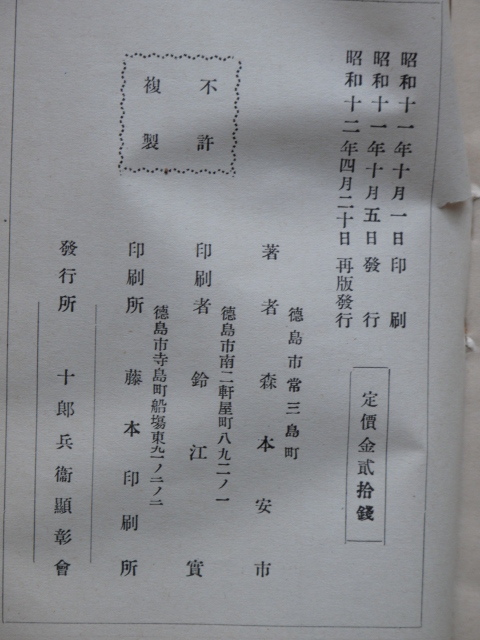 昭和十一年十月一日印刷
昭和十一年十月五日發行
昭和十二年四月二十日再版發行
定價金貳拾錢
不許
複製
德島市常三島町
著者森本安市
德島市南二軒屋町八九二ノ一
印刷者鈴江實
德島市寺島町船塲東九一ノ二ノ二
印刷所藤本印刷所
發行所十郎兵衞顯彰會